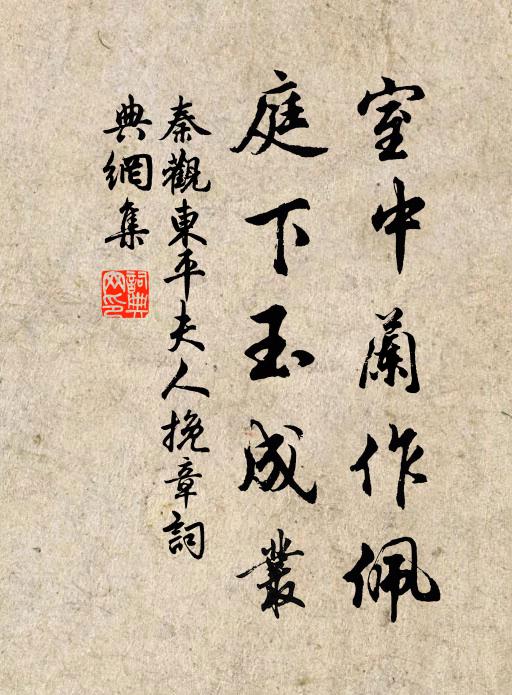 室中蘭作佩
庭下玉成叢
秦觀東平夫人挽章詞
典網集
詞典網印